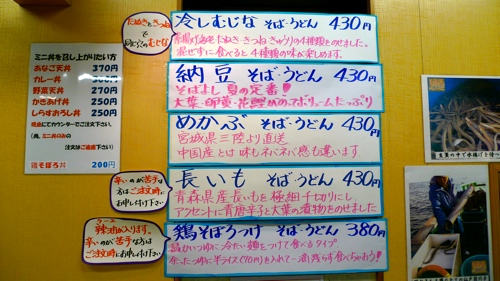 ミニ丼を召し上がりたい方
あなご天丼 370円
カレー丼 300円
野菜天丼 270円
かきあげ丼 250円
しらすおろし丼 250円
現金にてカウンターでご注文下さい。
注文はご遠慮下さい
鶏そぼろ丼 200円
たぬきときつね
で同じ穴のむじな
冷しむじな そば・うどん 430円
たぬき きつね きゅうりの4種類をのせました。
混ぜずに食べると4種類の味が楽しめます。
納豆 そば・うどん 430円
そばよし 夏の定番!!
大葉・卵黄・花鰹がのってボリュームたっぷり
めかぶ そば・うどん 430円
宮城県三陸より直送
中国産とは味もネバネバ感も違います
辛いのが苦手な
方はご注文時に
お申し付け下さい
長いも そば・うどん 430円
青森県産長いもを極細千切りにし
アクセントに青唐辛子と大葉の漬物をのせました
辣油が入ります。
辛いのが苦手な方は
ご注文時にお申し付け下さい
鶏そぼろつけ そば・うどん 380円
温かいつゆに冷たい麺をつけて食べるタイプ
余ったつゆに半ライス(70円)を入れて一滴残らず食べちゃおう!!